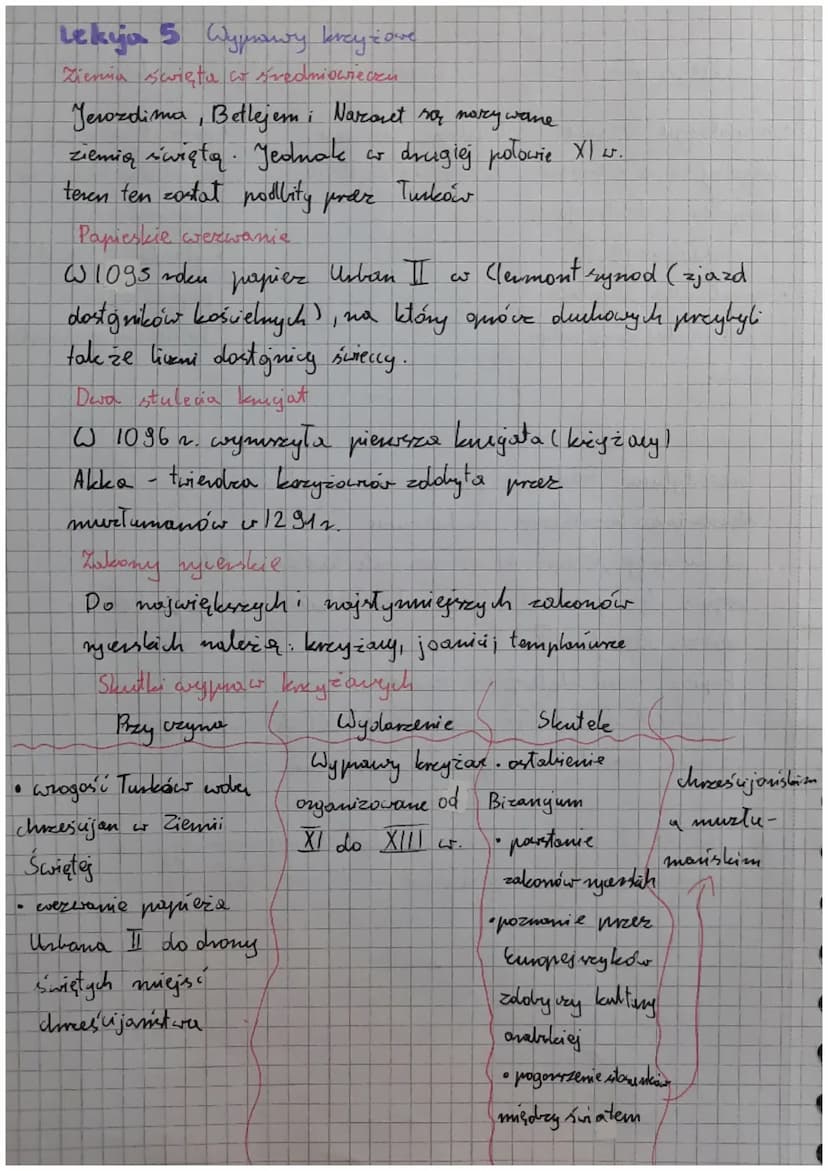 Lekcja 5 Wyprawy krzyżowe
Ziemia święta w średniowieczu
Jerozolima, Betlejem i Nazaret są nazywane
ziemią świętą. Jednak w drugiej połowie XI w.
teren ten został podbity przez Turków
Papieskie wezwanie
W 1095 roku papież Urban II w Clermont synod (zjazd
dostojników kościelnych), na który oprócz duchowych przybyli
także liczni dostojnicy świeccy.
Dwa stulecia krucjat
W 1096 r. wyruszyła pierwsza krucjata (krzyżacy)
Akka - twierdza krzyżowców zdobyta przez
muzułmanów w 1291r.
Zakony rycerskie
Do największych i najsłynniejszych zakonów
rycerskich należą: krzyżacy, joanici, templariusze
Skutki wypraw krzyżowych
Przyczyna Wydarzenie Skutek
• wrogość Turków wobec
chrześcijan w Ziemii
Świętej
• wezwanie papieża
Urbana II do obrony
świętych miejsc
chrześcijaństwa
Wyprawy krzyżow.
organizowane od
XI do XIII w.
• osłabienie
Bizancjum
• powstanie
zakonów rycerskich
• poznanie przez
Europejczyków
zdobyczy kultury
arabskiej
• pogorszenie stosunków
między światem
chrześcijańskim
a muzuł-
mańskim